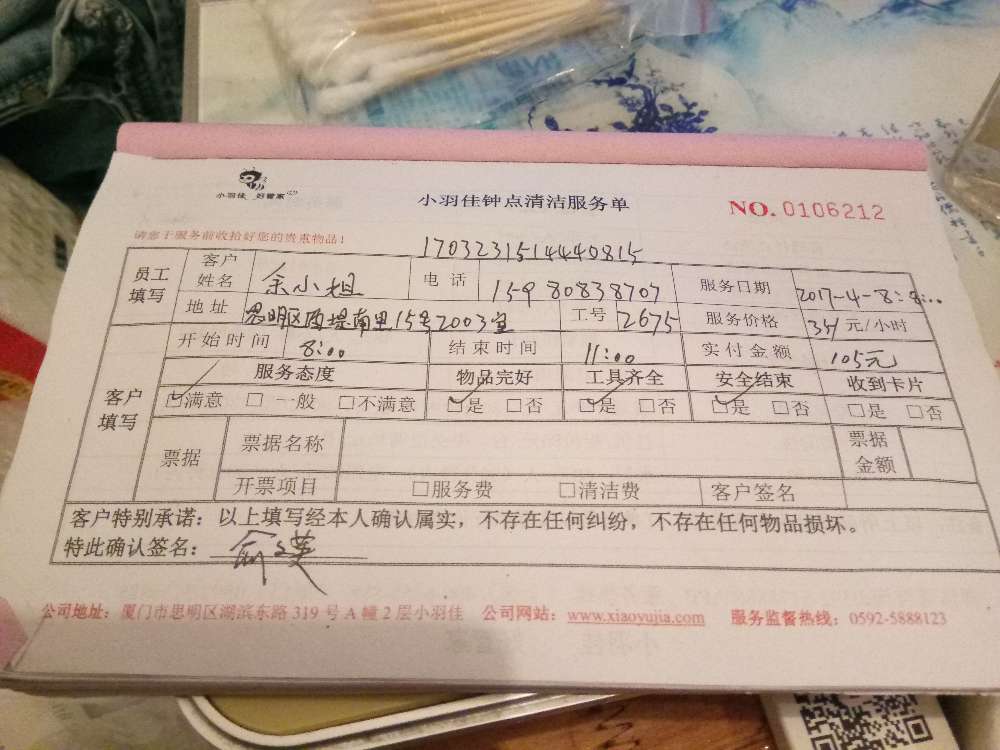 小羽佳 好管家
小羽佳钟点清洁服务单
NO. 0106212
请您于服务前收拾好您的贵重物品!
1703231514440815
员工填写 客户姓名 余小姐 电话 15980838707 服务日期 2017-4-8:
地址 思明区 堤南里15号2003室 工号 2675 服务价格 35/ 元/小时
客户填写 开始时间 8:00 结束时间 11:00 实付金额 105元
服务态度 物品完好 工具齐全 安全结束 收到卡片
☑满意 □一般 □不满意 ☑是 □否 ☑是 □否 ☑是 □否 □是 □否
票据 票据名称 票据金额
开票项目 □服务费 □清洁费 客户签名
客户特别承诺：以上填写经本人确认属实，不存在任何纠纷，不存在任何物品损坏。
特此确认签名：
公司地址：厦门市思明区湖滨东路 319 号 A 幢 2 层小羽佳 公司网站：www.xiaoyujia.com 服务监督热线：0592-5888123